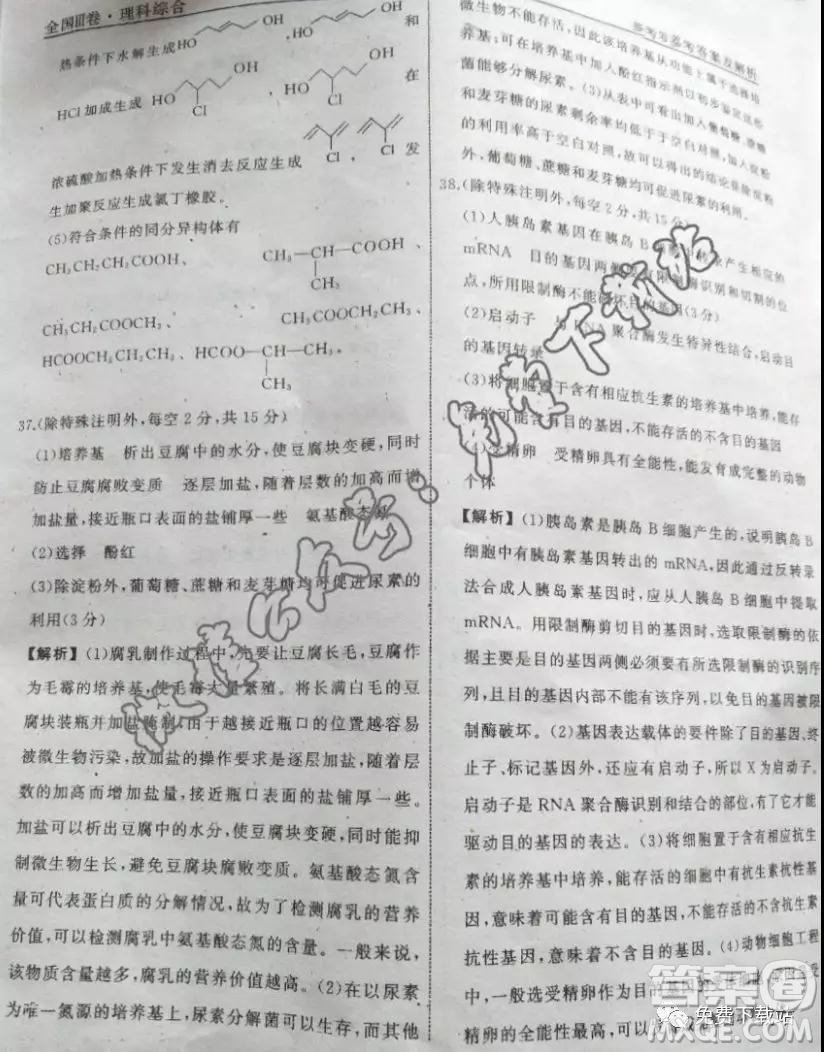 全国Ⅲ卷·理科综合
热条件下水解生成HO OH,HO OH和
HCl加成生成HO Cl OH、HO Cl OH在
浓硫酸加热条件下发生消去反应生成 Cl、 Cl,发
生加聚反应生成氯丁橡胶。
(5)符合条件的同分异构体有
CH₃CH₂CH₂COOH、 CH₃—CH—COOH、
CH₃
CH₃CH₂COOCH₃、 CH₃COOCH₂CH₃、
HCOOCH₂CH₂CH₃、HCOO—CH—CH₃。
CH₃
37.(除特殊注明外,每空2分,共15分)
(1)培养基 析出豆腐中的水分,使豆腐块变硬,同时
防止豆腐腐败变质 逐层加盐,随着层数的加高而增
加盐量,接近瓶口表面的盐铺厚一些 氨基酸态氮
(2)选择 酚红
(3)除淀粉外,葡萄糖、蔗糖和麦芽糖均可促进尿素的
利用(3分)
【解析】(1)腐乳制作过程中,先要让豆腐长毛,豆腐作
为毛霉的培养基,使毛霉大量繁殖。将长满白毛的豆
腐块装瓶并加盐腌制,由于越接近瓶口的位置越容易
被微生物污染,故加盐的操作要求是逐层加盐,随着层
数的加高而增加盐量,接近瓶口表面的盐铺厚一些。
加盐可以析出豆腐中的水分,使豆腐块变硬,同时能抑
制微生物生长,避免豆腐块腐败变质。氨基酸态氮含
量可代表蛋白质的分解情况,故为了检测腐乳的营养
价值,可以检测腐乳中氨基酸态氮的含量。一般来说,
该物质含量越多,腐乳的营养价值越高。(2)在以尿素
为唯一氮源的培养基上,尿素分解菌可以生存,而其他
参考答案及解析
微生物不能存活,因此该培养基从功能上属于选择培
养基;可在培养基中加入酚红指示剂以初步鉴定这些
菌能够分解尿素。(3)从表中可看出加入葡萄糖、蔗糖
和麦芽糖的尿素剩余率均低于于空白对照,加入淀粉
的利用率高于空白对照,故可以得出的结论是除淀粉
外,葡萄糖、蔗糖和麦芽糖均可促进尿素的利用。
38.(除特殊注明外,每空2分,共15分)
(1)人胰岛素基因在胰岛B 产生相应的
mRNA 目的基因两侧 限制酶识别和切割的位
点,所用限制酶不能破坏目的基因(3分)
(2)启动子 与RNA聚合酶发生特异性结合,启动目
的基因转录
(3)将细胞置于含有相应抗生素的培养基中培养,能存
活的可能含有目的基因,不能存活的不含目的基因
(4)受精卵 受精卵具有全能性,能发育成完整的动物
个体
【解析】(1)胰岛素是胰岛B细胞产生的,说明胰岛B
细胞中有胰岛素基因转出的mRNA,因此通过反转录
法合成人胰岛素基因时,应从人胰岛B细胞中提取
mRNA。用限制酶剪切目的基因时,选取限制酶的依
据主要是目的基因两侧必须要有所选限制酶的识别序
列,且目的基因内部不能有该序列,以免目的基因被限
制酶破坏。(2)基因表达载体的要件除了目的基因、终
止子、标记基因外,还应有启动子,所以X为启动子。
启动子是RNA聚合酶识别和结合的部位,有了它才能
驱动目的基因的表达。(3)将细胞置于含有相应抗生
素的培养基中培养,能存活的细胞有抗生素抗性基
因,意味着可能含有目的基因,不能存活的不含抗生素
抗性基因,意味着不含目的基因。(4)动物细胞工程
中,一般选受精卵作为目的基因的受体细胞,
精卵的全能性最高,可以
答案圈
免费下载站
MXQE.COM